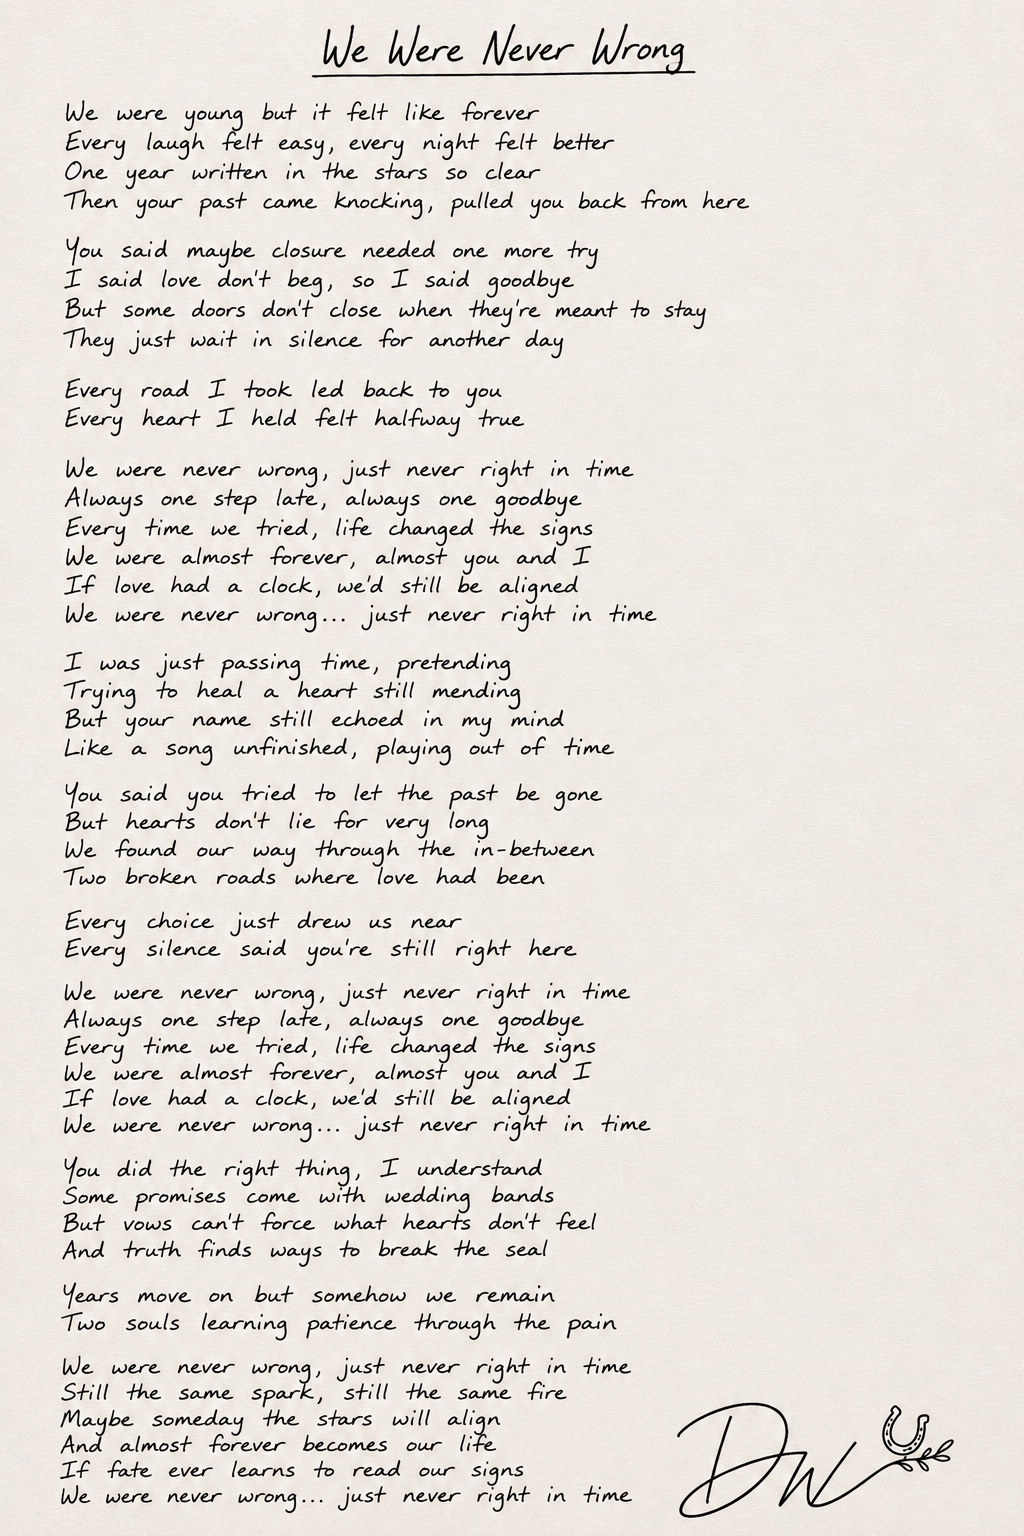 We Were Never Wrong
We were young but it felt like forever
Every laugh felt easy, every night felt better
One year written in the stars so clear
Then your past came knocking, pulled you back from here
You said maybe closure needed one more try
I said love don't beg, so I said goodbye
But some doors don't close when they're meant to stay
They just wait in silence for another day
Every road I took led back to you
Every heart I held felt halfway true
We were never wrong, just never right in time
Always one step late, always one goodbye
Every time we tried, life changed the signs
We were almost forever, almost you and I
If love had a clock, we'd still be aligned
We were never wrong... just never right in time
I was just passing time, pretending
Trying to heal a heart still mending
But your name still echoed in my mind
Like a song unfinished, playing out of time
You said you tried to let the past be gone
But hearts don't lie for very long
We found our way through the in-between
Two broken roads where love had been
Every choice just drew us near
Every silence said you're still right here
We were never wrong, just never right in time
Always one step late, always one goodbye
Every time we tried, life changed the signs
We were almost forever, almost you and I
If love had a clock, we'd still be aligned
We were never wrong... just never right in time
You did the right thing, I understand
Some promises come with wedding bands
But vows can't force what hearts don't feel
And truth finds ways to break the seal
Years move on but somehow we remain
Two souls learning patience through the pain
We were never wrong, just never right in time
Still the same spark, still the same fire
Maybe someday the stars will align
And almost forever becomes our life
If fate ever learns to read our signs
We were never wrong... just never right in time
DW